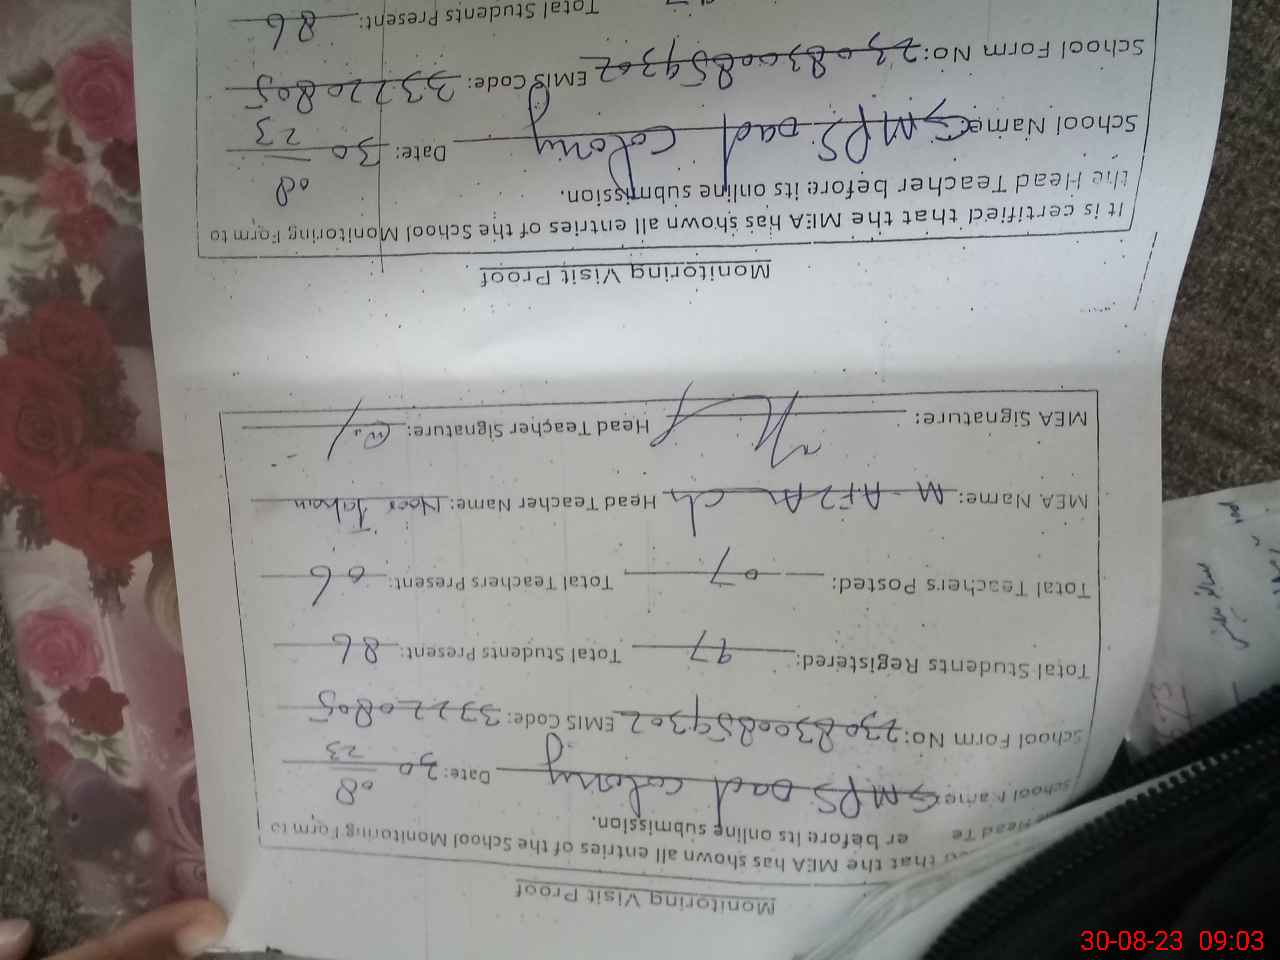 Monitoring Visit Proof
that the MEA has shown all entries of the School Monitoring Form to
Head Te er before its online submission.
School Name GMPS Dad colony Date: 30 08 23
School Form No: 2308300859302 EMIS Code: 33220805
Total Students Registered: 97 Total Students Present: 86
Total Teachers Posted: 07 Total Teachers Present: 06
MEA Name: M. AFZAL ch Head Teacher Name: Noor Jahan
MEA Signature: Head Teacher Signature:
Monitoring Visit Proof
It is certified that the MEA has shown all entries of the School Monitoring Form to
the Head Teacher before its online submission.
School Name GMPS Dad colony Date: 30 08 23
School Form No: 2308300859302 EMIS Code: 33220805
Total Students Present: 86
30-08-23 09:03